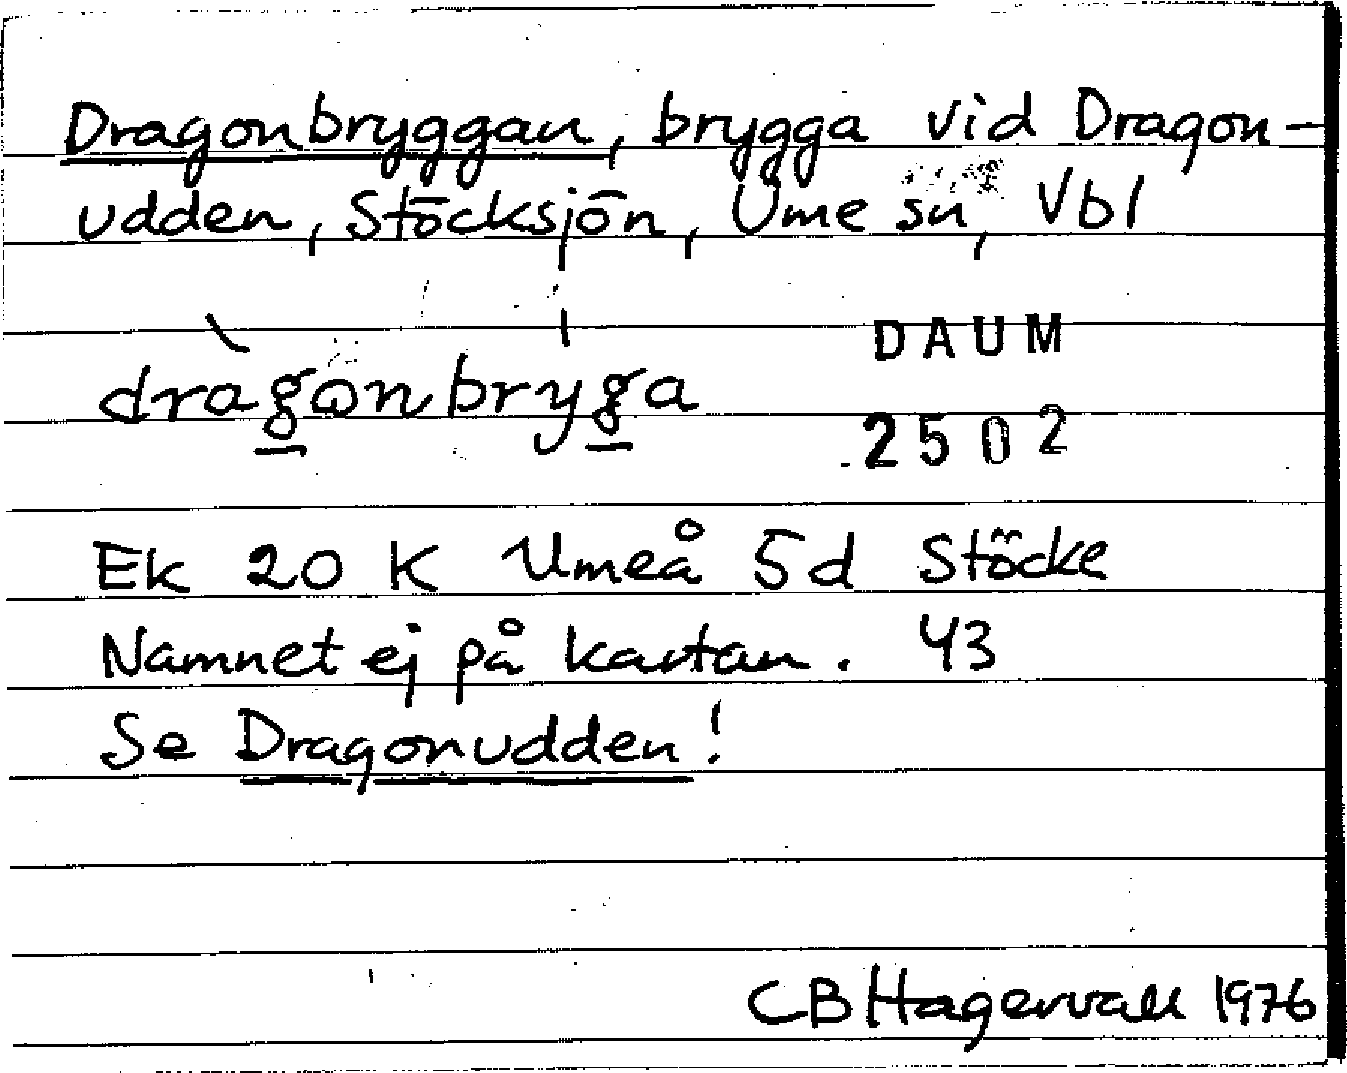 Dragonbryggan, brygga vid Dragon-
udden, Stöcksjön, Ume sn, Vbl
dràgonbryga
DAUM
2502
Ek 20 K Umeå 5d Stöcke
Namnet ej på kartan. 43
Se Dragonudden!
CB Hagervall 1976